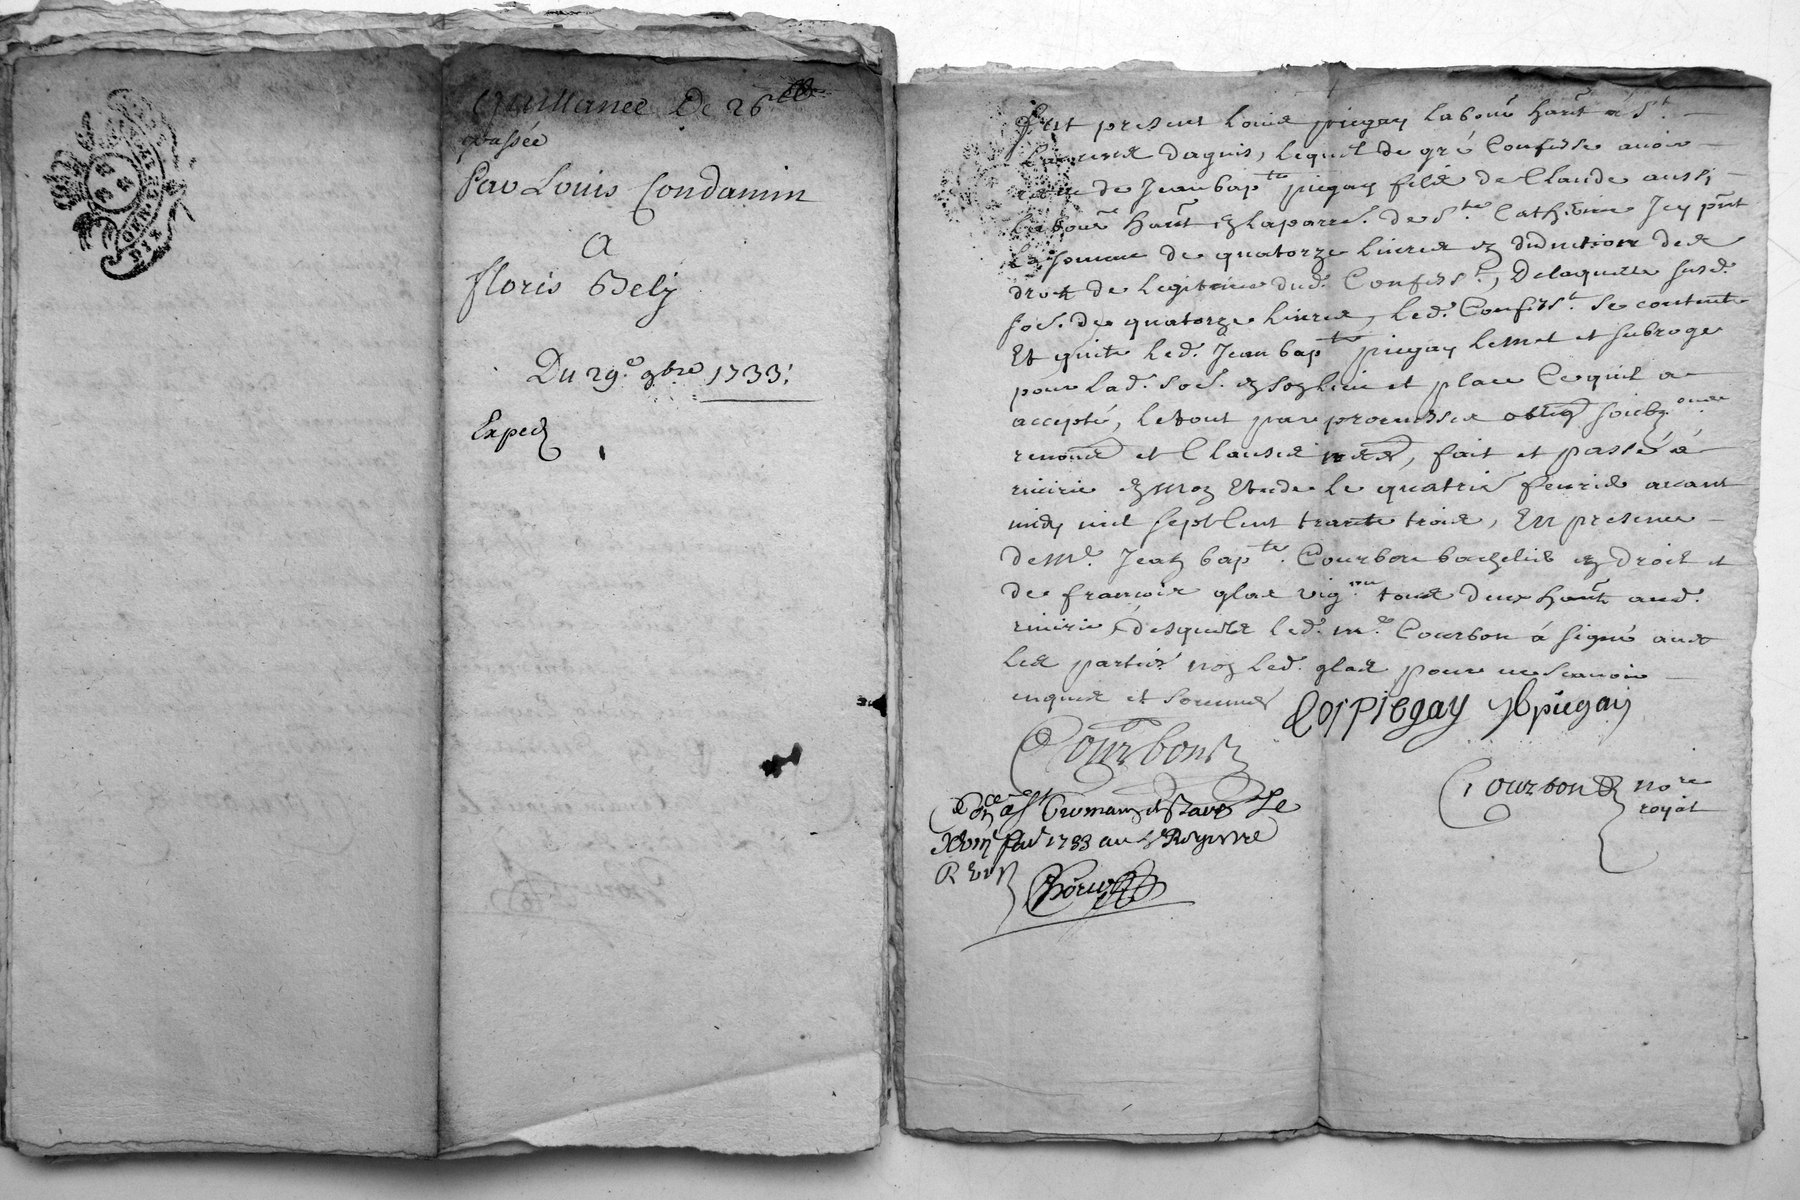 Quittance De 26 ₶
passée
Par Louis Condamin
A
floris Bely
Du 29e 9bre 1733.
Exped
fut present Louis piegay labour hant a St
Laurens dagnis, lequel de gré Confesse avoir
de Jean bapte piegay fils de Claude aussi
labour hant en laparr. de Ste Catherine Icy pnt
la somme de quatorze livres en diduction des
droit de legitime dud. Confesst, Delaquelle susd.
so.e de quatorze livres, led. Confesst se contente
Et quite led. Jean bapte piegay lemet et subroge
pour lad. so.e en son lieu et place Cequil a
accepté, letout par promesses oblig
renonce et Clauses, fait et passé a
riverie en mon Etude le quatrie fevrier avant
midy mil sept Cent trante trois, En presence
de Mr Jean bapte Courbon bachelier en droit et
de francois glas vigron tous deux hant aud.
riverie, desquels led. me Courbon à signé avec
les parties non led. glas pour ne scavoir
enquis et sommé
Loi piegay JB piegay
Courbon
Courbon nore
royal
St Romain Le
fev 1733 au Regisstre